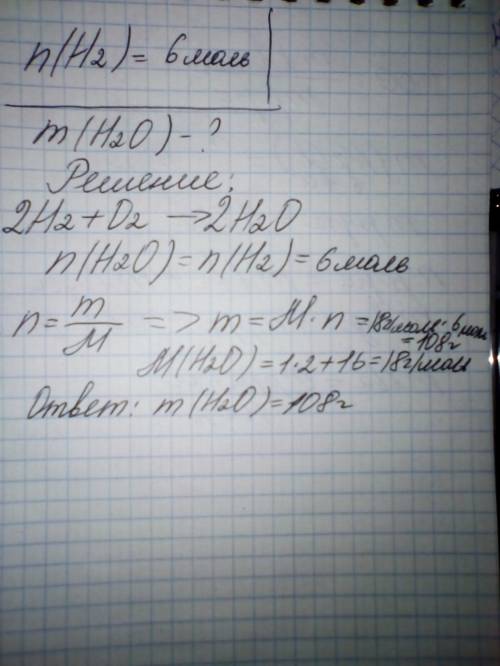 n(H2) = 6 моль
m(H2O) - ?
Решение:
2H2 + O2 → 2H2O
n(H2O) = n(H2) = 6 моль
n = m/M => m = M·n = 18г/моль·6моль
= 108г
M(H2O) = 1·2 + 16 = 18г/моль
Ответ: m(H2O) = 108г